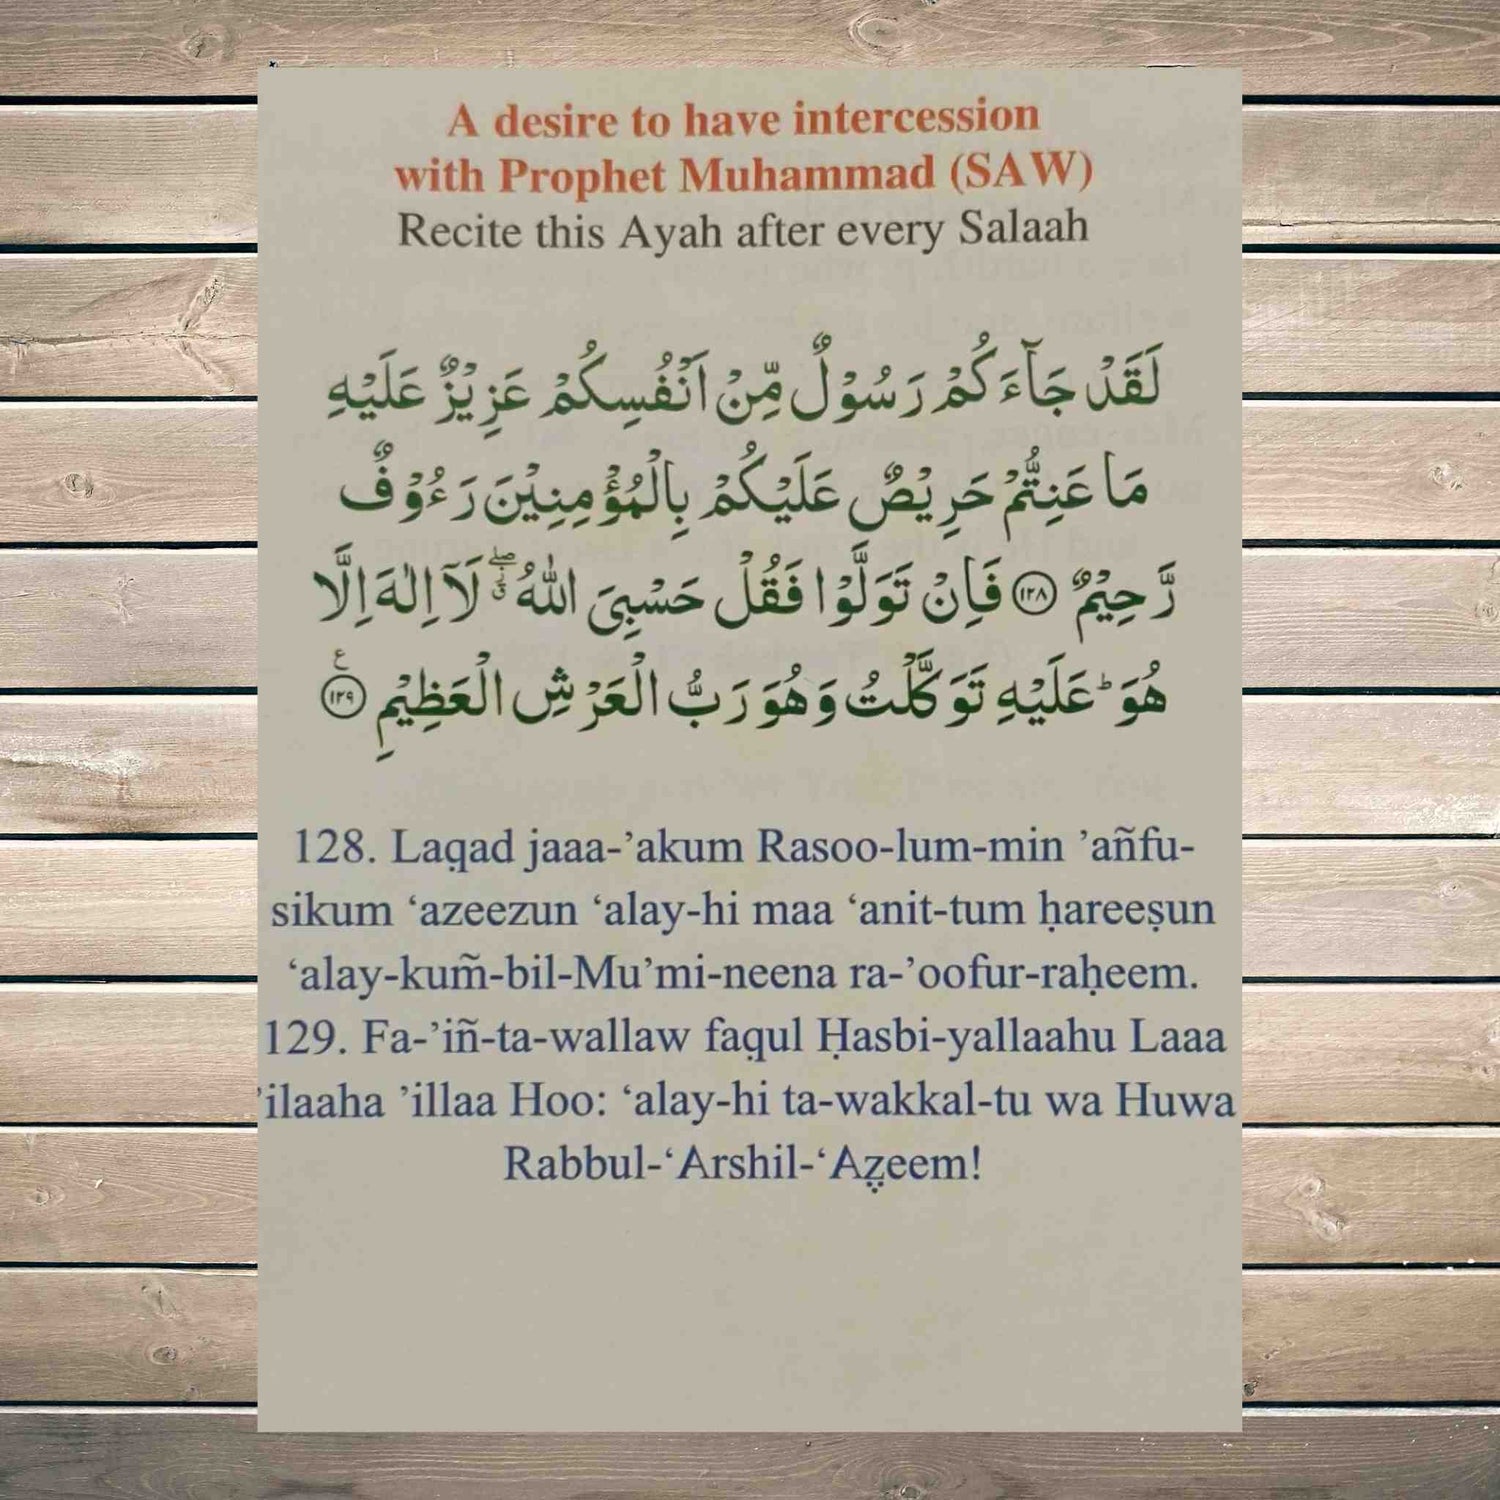 A desire to have intercession
with Prophet Muhammad (SAW)
Recite this Ayah after every Salaah
لَقَدْ جَآءَكُمْ رَسُوْلٌ مِّنْ اَنْفُسِكُمْ عَزِيْزٌ عَلَيْهِ
مَا عَنِتُّمْ حَرِيْصٌ عَلَيْكُمْ بِالْمُؤْمِنِيْنَ رَءُوْفٌ
رَّحِيْمٌ ﴿۱۲۸﴾ فَاِنْ تَوَلَّوْا فَقُلْ حَسْبِىَ اللّٰهُ ۖ ۗ لَآ اِلٰهَ اِلَّا
هُوَ ؕ عَلَيْهِ تَوَكَّلْتُ وَهُوَ رَبُّ الْعَرْشِ الْعَظِيْمِ ﴿۱۲۹﴾ ع
128. Laqad jaaa-’akum Rasoo-lum-min ’añfu-
sikum ‘azeezun ‘alay-hi maa ‘anit-tum ḥareeṣun
‘alay-kum̃-bil-Mu’mi-neena ra-’oofur-raḥeem.
129. Fa-’iñ-ta-wallaw faqul Ḥasbi-yallaahu Laaa
’ilaaha ’illaa Hoo: ‘alay-hi ta-wakkal-tu wa Huwa
Rabbul-‘Arshil-‘Aẓeem!